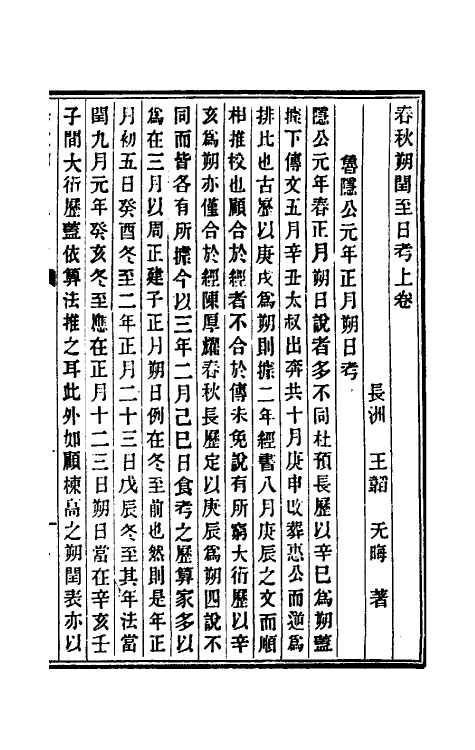 春秋朔閏至日考上卷
長洲 王韜 无晦 著
魯隱公元年正月朔日考
隱公元年春正月朔日說者多不同杜預長歷以辛巳爲朔蓋
據下傳文五月辛丑太叔出奔共十月庚申改葬惠公而遞爲
排比也古歷以庚戌爲朔則據二年經書八月庚辰之文而順
相推校也顧合於經者不合於傳未免說有所窮大衍歷以辛
亥爲朔亦僅合於經陳厚耀春秋長歷定以庚辰爲朔四說不
同而皆各有所據今以三年二月己巳日食考之歷算家多以
爲在三月以周正建子正月朔日例在冬至前也然則是年正
月初五日癸酉冬至二年正月二十三日戊辰冬至其年法當
閏九月元年癸亥冬至應在正月十二三日朔日當在辛亥壬
子間大衍歷蓋依算法推之耳此外如顧棟高之朔閏表亦以